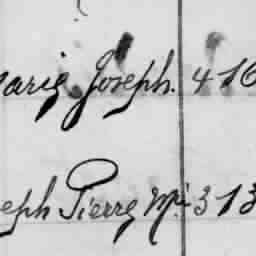 arie Joseph. 416
eph Pierre Mr. 313